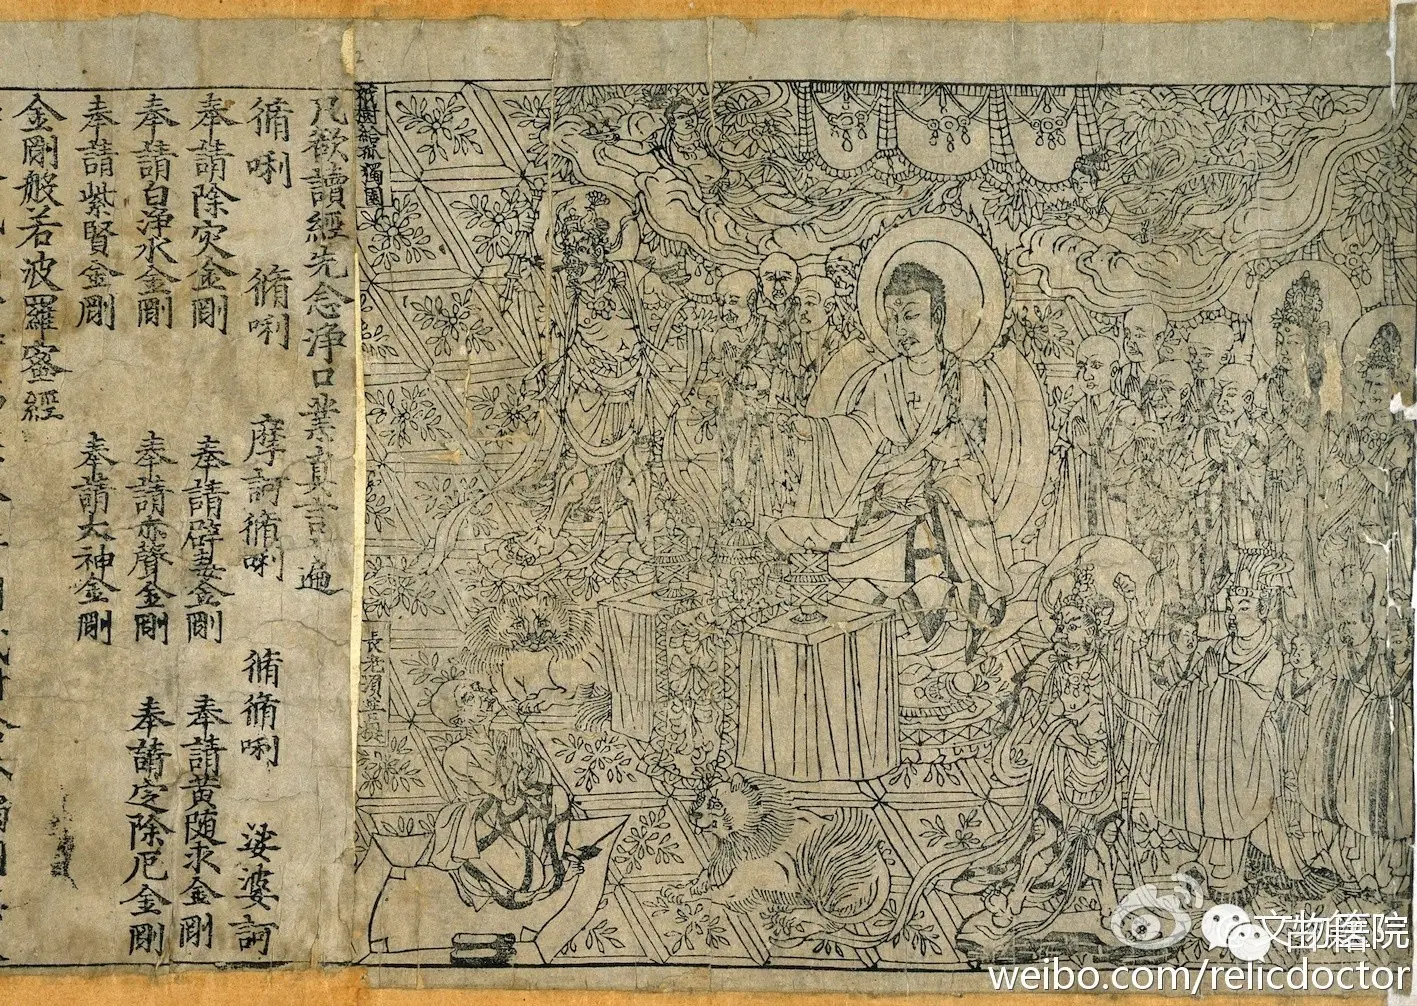 祇樹給孤獨園
長老須菩提
凡欲讀經先念浄口業真言一遍
脩唎 脩唎 摩訶脩唎 脩脩唎 娑婆訶
奉請除灾金剛 奉請辟毒金剛 奉請黄随求金剛
奉請白浄水金剛 奉請赤聲金剛 奉請定除厄金剛
奉請紫賢金剛 奉請大神金剛
金剛般若波羅蜜經
weibo.com/relicdoctor